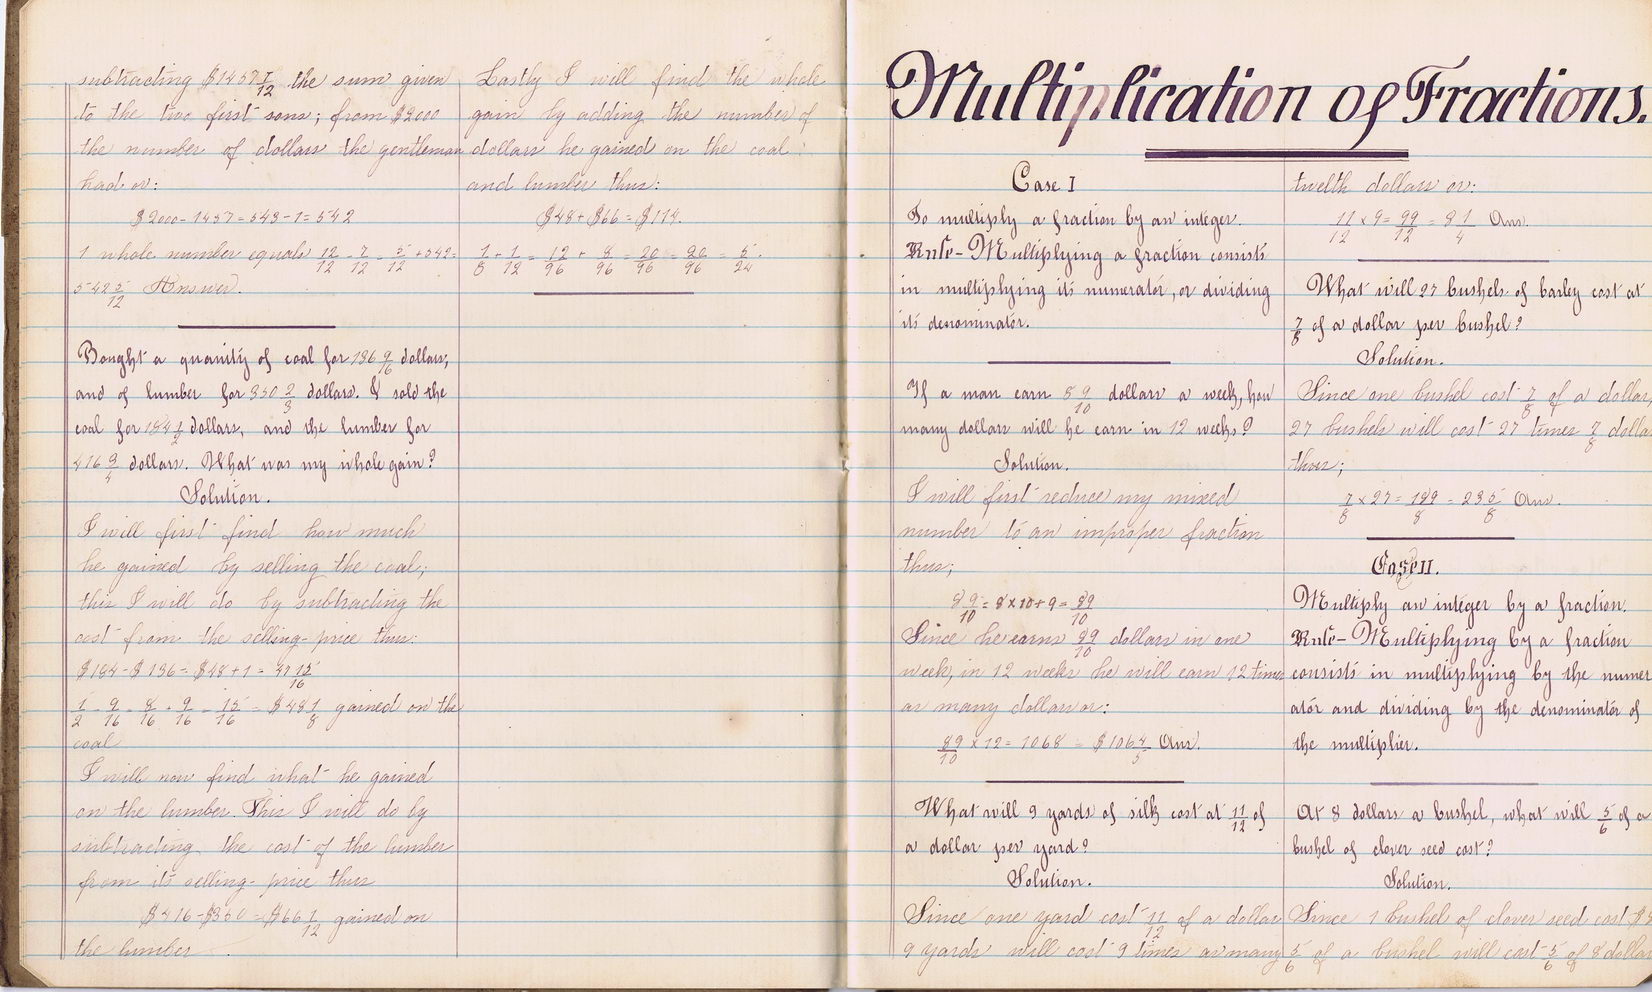 subtracting $1457 7/12 the sum given
to the two first sons; from $2000
the number of dollars the gentleman
had or:
$2000 - 1457 = 543 - 1 = 542
1 whole number equals 12/12 - 7/12 = 5/12 + 542 =
542 5/12 Answer.
Bought a quantity of coal for 136 9/16 dollars,
and of lumber for 350 2/3 dollars. I sold the
coal for 184 1/2 dollars, and the lumber for
416 3/4 dollars. What was my whole gain?
Solution.
I will first find how much
he gained by selling the coal;
this I will do by subtracting the
cost from the selling-price thus:
$184 - $136 = $48 + 1 = 47 15/16
1/2 - 9/16 = 8/16 - 9/16 = 15/16 = $48 1/8 gained on the
coal
I will now find what he gained
on the lumber. This I will do by
subtracting the cost of the lumber
from its selling-price thus
$416 - $350 = $66 1/12 gained on
the lumber.
Lastly I will find the whole
gain by adding the number of
dollars he gained on the coal
and lumber thus:
$48 + $66 = $114.
1/8 + 1/12 = 12/96 + 8/96 = 20/96 = 20/96 = 5/24.
Multiplication of Fractions.
Case I
To multiply a fraction by an integer.
Rule - Multiplying a fraction consists
in multiplying its numerator, or dividing
its denominator.
If a man earn 8 9/10 dollars a week, how
many dollars will he earn in 12 weeks?
Solution.
I will first reduce my mixed
number to an improper fraction
thus;
8 9/10 = 8 x 10 + 9 = 89/10
Since he earns 89/10 dollars in one
week, in 12 weeks he will earn 12 times
as many dollars or:
89/10 x 12 = 1068 = $106 4/5 Ans.
What will 9 yards of silk cost at 11/12 of
a dollar per yard?
Solution.
Since one yard cost 11/12 of a dollar
9 yards will cost 9 times as many
twelth dollars or:
11/12 x 9 = 99/12 = 8 1/4 Ans.
What will 27 bushels of barley cost at
7/8 of a dollar per bushel?
Solution.
Since one bushel cost 7/8 of a dollar,
27 bushels will cost 27 times 7/8 dolla
thus;
7/8 x 27 = 189/8 = 23 5/8 Ans.
Case II.
Multiply an integer by a fraction.
Rule - Multiplying by a fraction
consists in multiplying by the numer
ator and dividing by the denominator of
the multiplier.
At 8 dollars a bushel, what will 5/6 of a
bushel of clover seed cost?
Solution.
Since 1 bushel of clover seed cost $8
5/6 of a bushel will cost 5/6 of 8 dollar